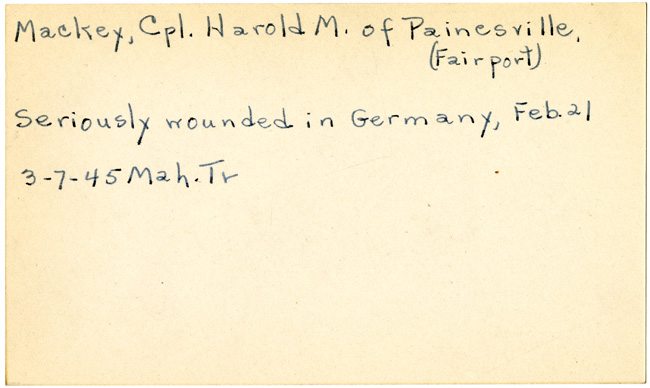 Mackey, Cpl. Harold M. of Painesville,
(Fairport)
Seriously wounded in Germany, Feb. 21
3-7-45 Mah. Tr